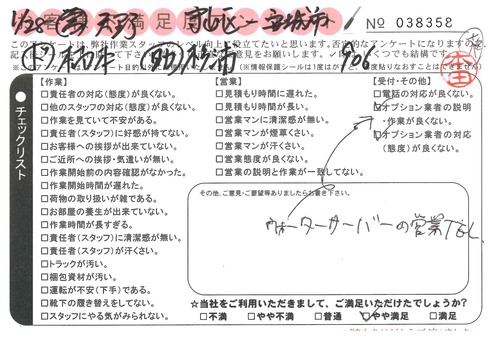 1/28 営 天野 守山区〜安城市
満足
No 038358
このアンケートは、弊社作業スタッフのレベル向上に役立てたいと思います。否定的なアンケートになりますので
906
チェックリスト
【作業】
□責任者の対応(態度)が良くない。
□他のスタッフの対応(態度)が良くない。
□作業を見ていて不安がある。
□責任者(スタッフ)に好感が持てない。
□お客様への挨拶が出来ていない。
□ご近所への挨拶・気遣いが無い。
□作業開始前の内容確認がなかった。
□作業開始時間が遅れた。
□荷物の取り扱いが雑である。
□お部屋の養生が出来ていない。
□作業時間が長すぎる。
□責任者(スタッフ)に清潔感が無い。
□責任者(スタッフ)が汗くさい。
□トラックが汚い。
□梱包資材が汚い。
□運転が不安(下手)である。
□靴下の履き替えをしてない。
□スタッフにやる気がみられない。
【営業】
□見積もり時間に遅れた。
□見積もり時間が長い。
□営業マンに清潔感が無い。
□営業マンが煙草くさい。
□営業マンが汗くさい。
□営業態度が良くない。
□営業の説明と作業が一致してない。
【受付・その他】
□電話の対応が良くない。
□オプション業者の説明
・作業が良くない。
□オプション業者の対応
(態度)が良くない。
その他、ご意見・ご要望等ありましたらお書き下さい。
ウォーターサーバーの営業TEL
☆当社をご利用いただきまして、ご満足いただけたでしょうか?
□不満 □やや不満 □普通 □やや満足 □満足